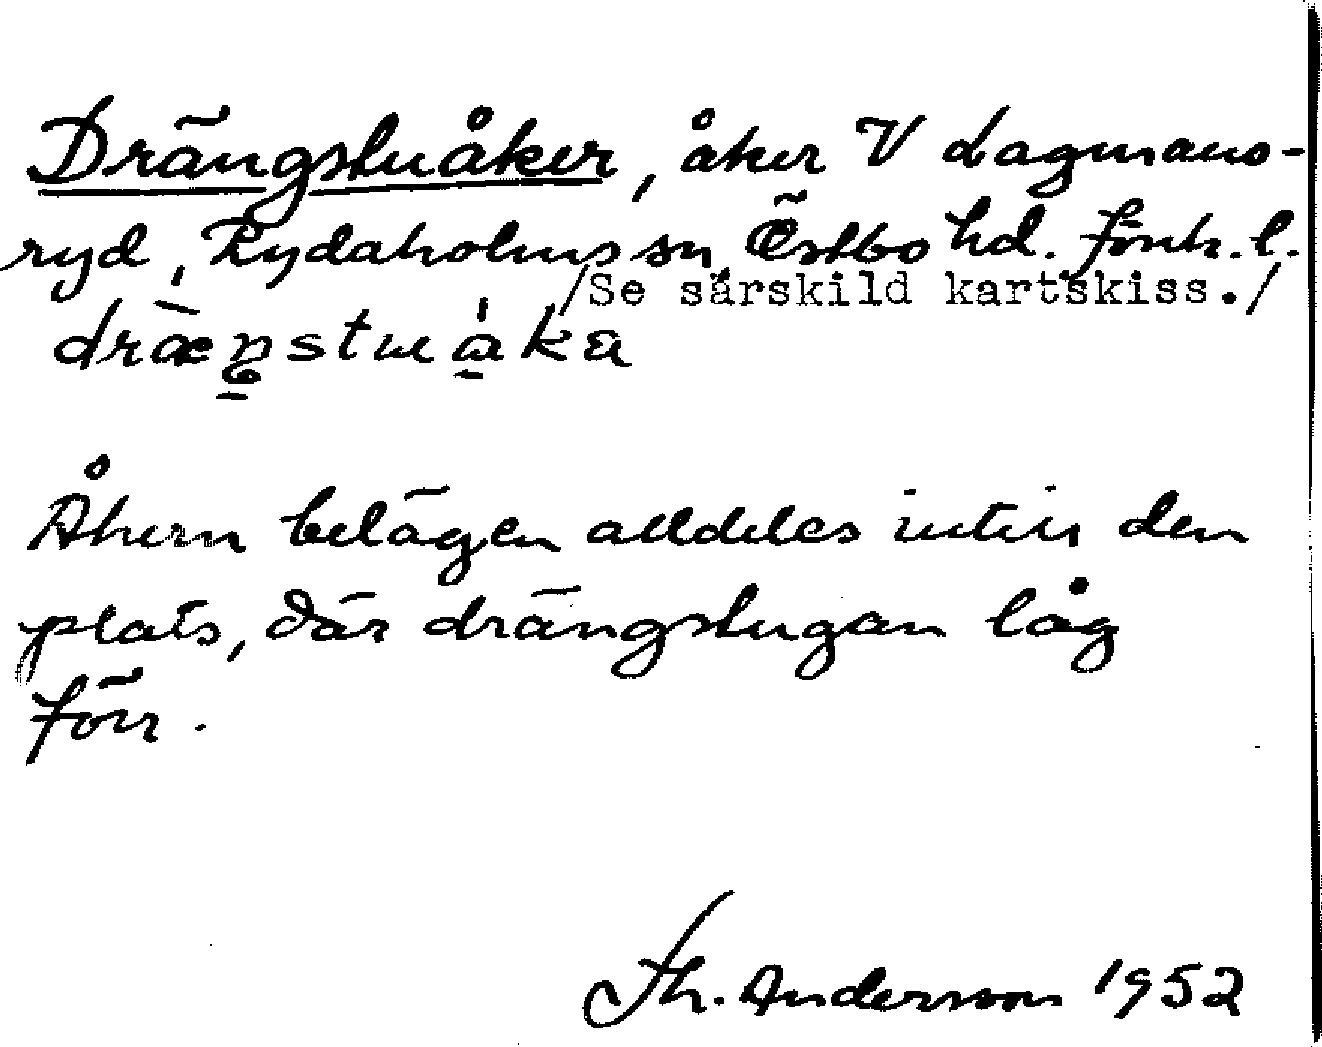 Drängstuåker, åker V Lagmans-
ryd, Rydaholms sn, Östbo hd. Jönk. l.
/Se särskild kartskiss./
dræŋstuåka
Åkern belägen alldeles intill den
plats, där drängstugan låg
förr.
Th. Andersson 1952